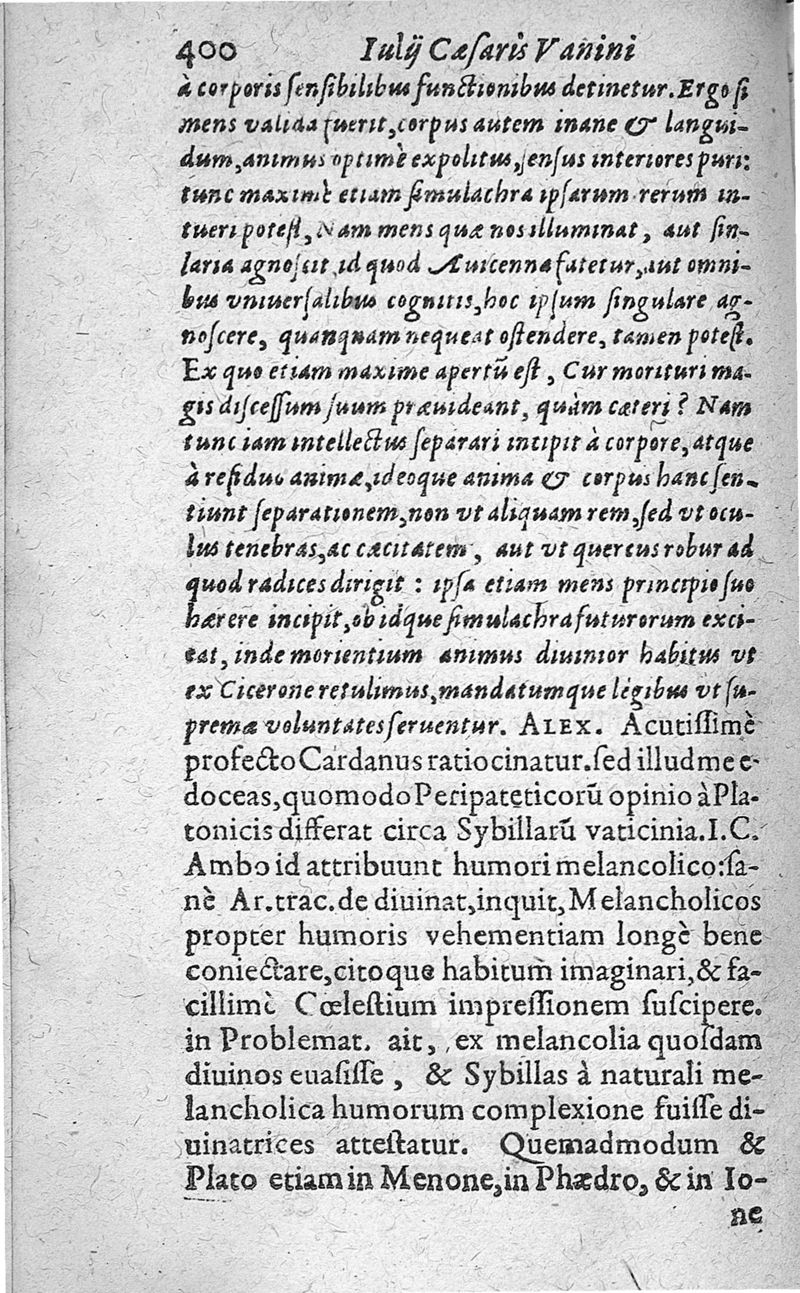 400 Iulij Cæſaris Vanini
à corporis ſenſibilibus functionibus detinetur. Ergo ſi
mens valida fuerit, corpus autem inane & langui-
dum, animus optimè expolitus, ſenſus interiores puri:
tunc maximè etiam ſimulachra ipſarum rerum in-
tueri poteſt, Nam mens quæ nos illuminat, aut ſin-
laria agnoſcit id quod Auicenna fatetur, aut omni-
bus vniuerſalibus cognitis, hoc ipſum ſingulare ag-
noſcere, quanquam nequeat oſtendere, tamen poteſt.
Ex quo etiam maxime apertū eſt, Cur morituri ma-
gis diſceſſum ſuum præuideant, quàm cæteri? Nam
tunc iam intellectus ſeparari incipit à corpore, atque
à reſiduo animæ, ideoque anima & corpus hanc ſen-
tiunt ſeparationem, non vt aliquam rem, ſed vt ocu-
lus tenebras, ac cæcitatem, aut vt quercus robur ad
quod radices dirigit : ipſa etiam mens principio ſuo
hærere incipit, ob idque ſimulachra futurorum exci-
tat, inde morientium animus diuinior habitus vt
ex Cicerone retulimus, mandatumque legibus vt ſu-
premæ voluntates ſeruentur. ALEX. Acutiſſimè
profecto Cardanus ratiocinatur. ſed illud me e-
doceas, quomodo Peripateticorū opinio à Pla-
tonicis differat circa Sybillarū vaticinia. I. C.
Ambo id attribuunt humori melancolico: ſa-
nè Ar. trac. de diuinat, inquit, Melancholicos
propter humoris vehementiam longè bene
coniectare, citoque habitum imaginari, & fa-
cillimè Cœleſtium impreſſionem ſuſcipere.
in Problemat. ait, ex melancolia quoſdam
diuinos euaſiſſe, & Sybillas à naturali me-
lancholica humorum complexione fuiſſe di-
uinatrices atteſtatur. Quemadmodum &
Plato etiam in Menone, in Phædro, & in Io-
ne